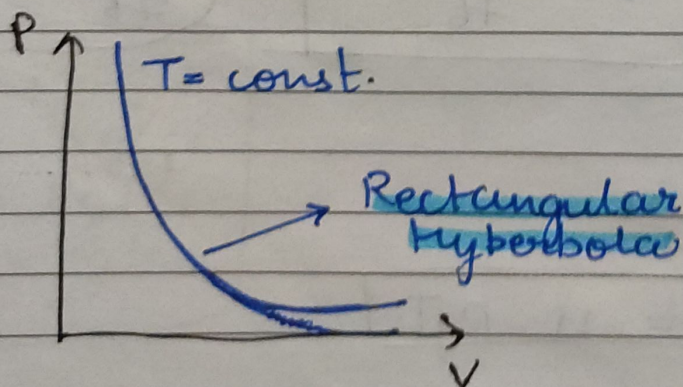 P
T= const.
Rectangular
Hyberbola
V